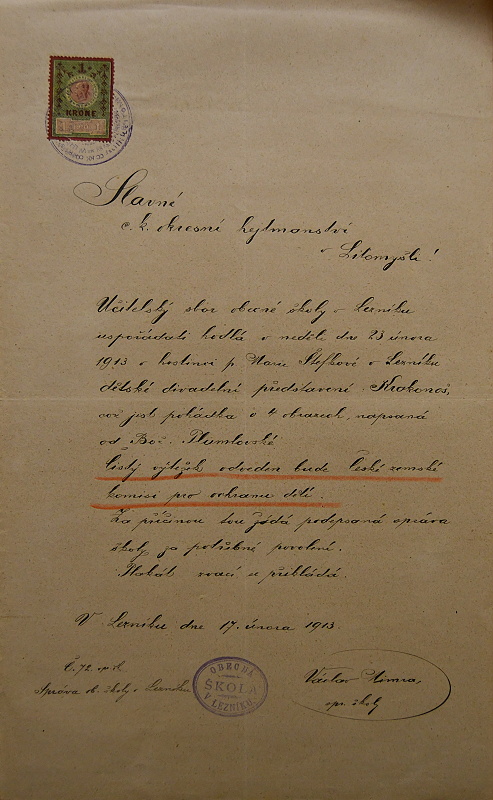 1
KRONE
Slavné
c. k. okresní hejtmanství
v Litomyšli!
Učitelský sbor obecné školy v Lezníku
uspořádati hodlá v neděli dne 23 února
1913 v hostinci p. Marie Štefkové v Lezníku
dětské divadelní představení „Krakonoš,
což jest pohádka o 4 obrazech, napsaná
od Bož. Plumlovské
Čistý výtěžek odveden bude České zemské
komisi pro ochranu dětí.
Za příčinou tou žádá podepsaná správa
školy za potřebné povolení.
Plakát zvací se přikládá.
V Lezníku dne 17. února 1913.
Č. 72 op. š.
Správa ob. školy v Lezníku
OBECNÁ
ŠKOLA
V LEZNÍKU.
Václav
spr. školy